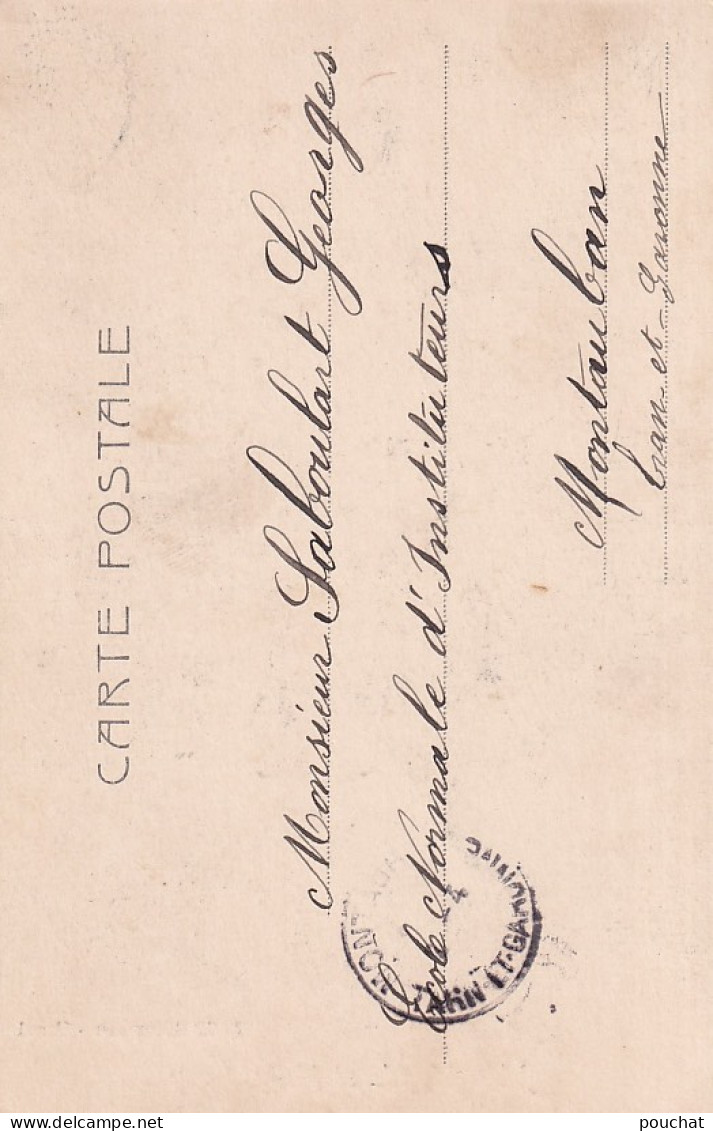 CARTE POSTALE
Monsieur Laboulart Georges
Ecole Normale d'Instituteurs
Montauban
Tarn-et-Garonne
TARN-ET-GARONNE
www.delcampe.net
pouchat